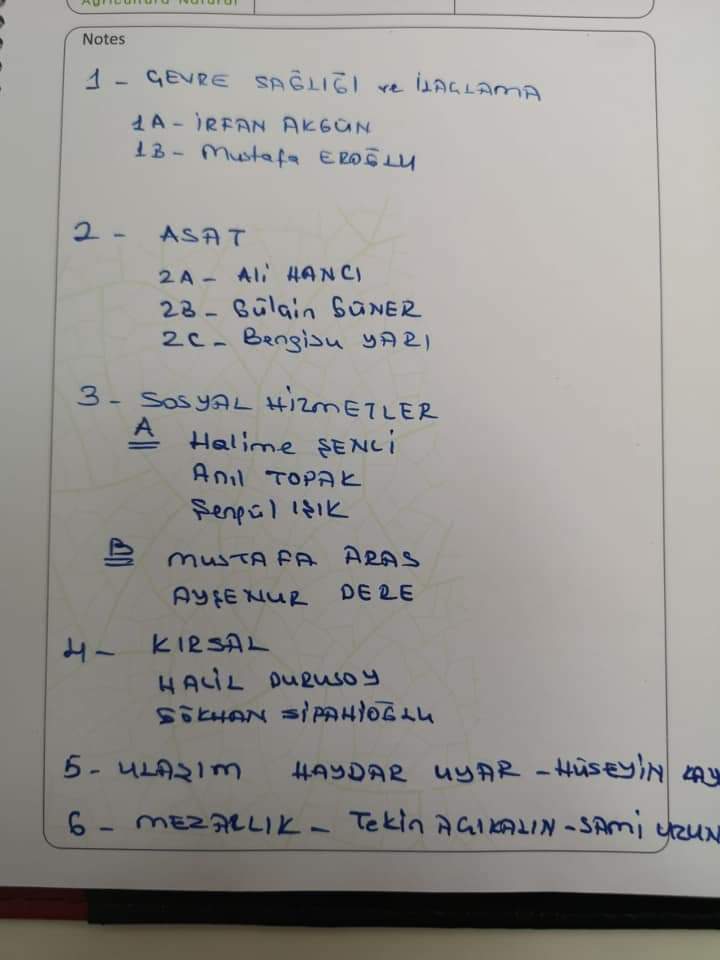 Agricultura Natural
Notes
1 - ÇEVRE SAĞLIĞI ve İLAÇLAMA
1A - İRFAN AKGÜN
1B - Mustafa EROĞLU
2 - ASAT
2A - Ali HANCI
2B - Gülçin GÜNER
2C - Bengisu YARI
3 - SOSYAL HİZMETLER
A Halime ŞENLİ
Anıl TOPAK
Şengül IŞIK
B MUSTAFA ARAS
AYŞENUR DERE
4 - KIRSAL
HALİL DURUSOY
GÖKHAN SİPAHİOĞLU
5 - ULAŞIM HAYDAR UYAR - HÜSEYİN
6 - MEZARLIK - Tekin AÇIKALIN - SAMİ UZUN